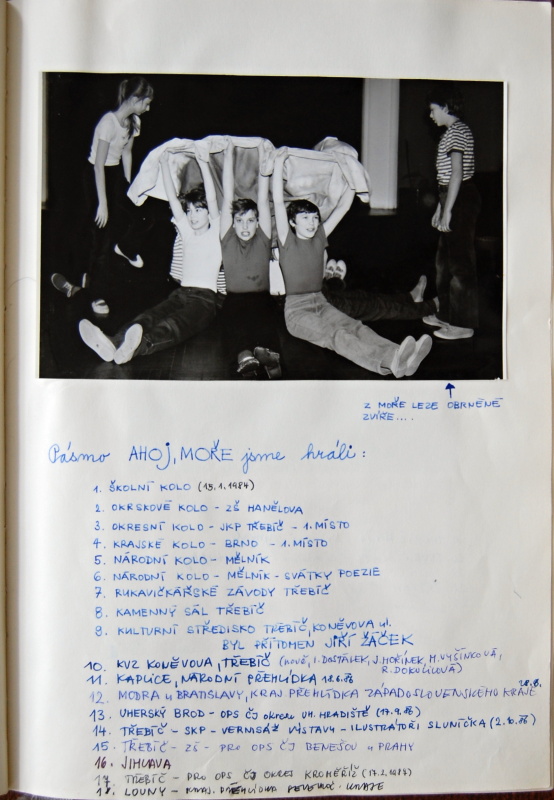 Z MOŘE LEZE OBRNĚNÉ
ZVÍŘE....
Pásmo AHOJ, MOŘE jsme hráli:
1. ŠKOLNÍ KOLO (15.1.1984)
2. OKRSKOVÉ KOLO - ZŠ HANĚLOVA
3. OKRESNÍ KOLO - JKP TŘEBÍČ - 1. MÍSTO
4. KRAJSKÉ KOLO - BRNO - 1. MÍSTO
5. NÁRODNÍ KOLO - MĚLNÍK
6. NÁRODNÍ KOLO - MĚLNÍK - SVÁTKY POEZIE
7. RUKAVIČKÁŘSKÉ ZÁVODY TŘEBÍČ
8. KAMENNÝ SÁL TŘEBÍČ
9. KULTURNÍ STŘEDISKO TŘEBÍČ, KONĚVOVA ul.
BYL PŘÍTOMEN JIŘÍ ŽÁČEK
10. KVZ KONĚVOVA, TŘEBÍČ (NOVĚ, I. DOSTÁLEK, J. MOŘÍNEK, M. VYŠÍNKOVÁ,
R. DOKULILOVÁ)
11. KAPLICE, NÁRODNÍ PŘEHLÍDKA 18.6.86
12. MODRA u BRATISLAVY, KRAJ. PŘEHLÍDKA ZÁPADOSLOVENSKÉHO KRAJE
13. UHERSKÝ BROD - OPS ČJ okresu UH. HRADIŠTĚ (17.9.86)
14. TŘEBÍČ - SKP - VERNISÁŽ VÝSTAVY - ILUSTRÁTOŘI SLUNÍČKA (2.10.86)
15. TŘEBÍČ - ZŠ - PRO OPS ČJ BENEŠOV u PRAHY
16. JIHLAVA
17. TŘEBÍČ - PRO OPS ČJ OKRES KROMĚŘÍŽ
18. LOUNY - PŘEHLÍDKA